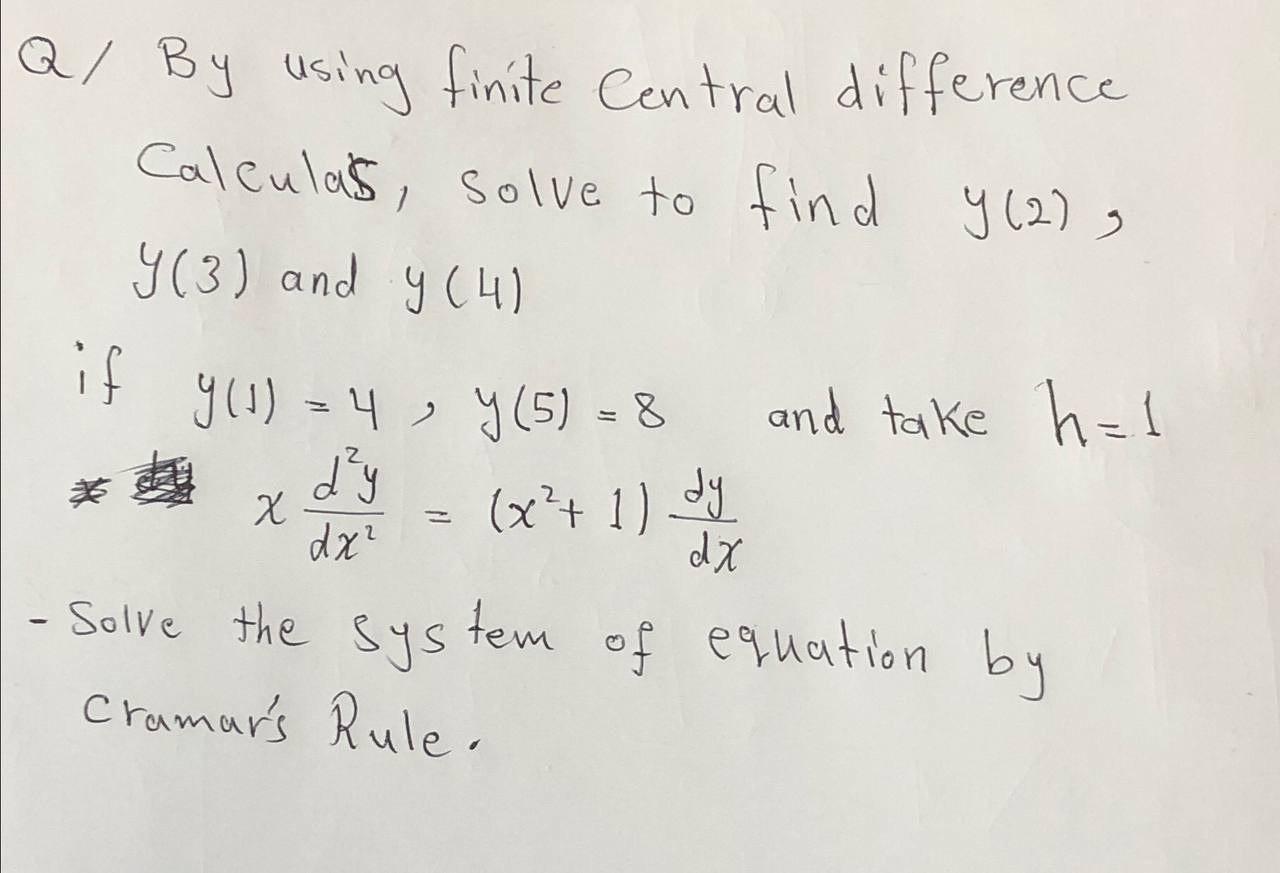 Q/ By using finite Central difference
Calculas, solve to find y(2),
y(3) and y(4)
if y(1) = 4, y(5) = 8 and take h=1
* x d²y/dx² = (x²+ 1) dy/dx
- Solve the system of equation by
cramar's Rule.